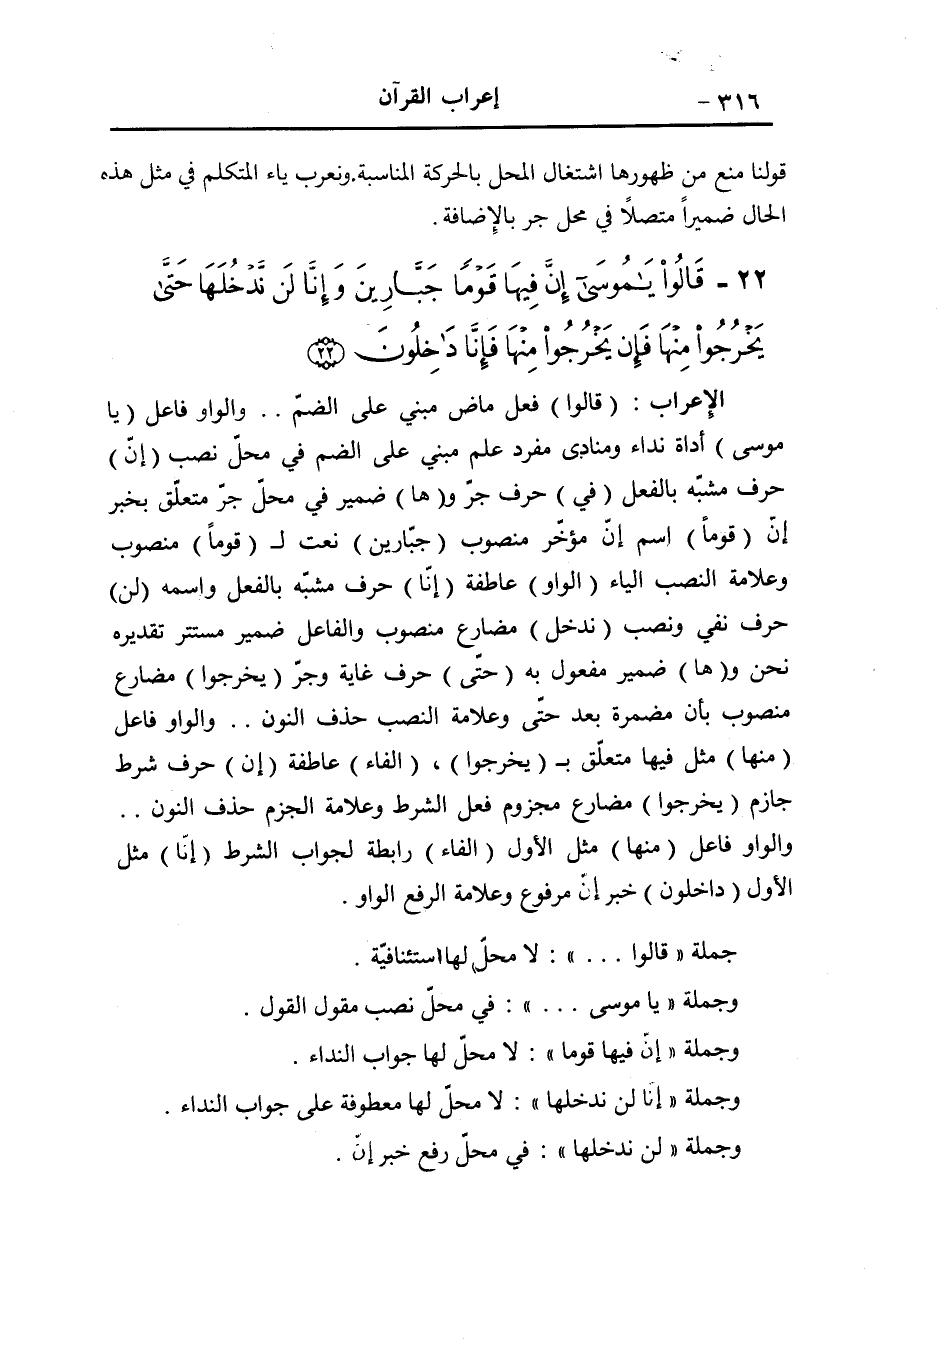 ٣١٦ – إعراب القرآن
قولنا منع من ظهورها اشتغال المحل بالحركة المناسبة.ونعرب ياء المتكلم في مثل هذه
الحال ضميراً متصلاً في محل جر بالإضافة .
٢٢ - قَالُوا۟ يَـٰمُوسَىٰٓ إِنَّ فِيهَا قَوْمًا جَبَّارِينَ وَإِنَّا لَن نَّدْخُلَهَا حَتَّىٰ
يَخْرُجُوا۟ مِنْهَا فَإِن يَخْرُجُوا۟ مِنْهَا فَإِنَّا دَٰخِلُونَ ٢٢
الإعراب : ( قالوا ) فعل ماض مبني على الضمّ . . والواو فاعل ( يا
موسى ) أداة نداء ومنادى مفرد علم مبني على الضم في محلّ نصب ( إنّ )
حرف مشبّه بالفعل ( في ) حرف جرّ و( ها ) ضمير في محلّ جرّ متعلّق بخبر
إنّ ( قوماً ) اسم إنّ مؤخّر منصوب ( جبّارين ) نعت لـ ( قوماً ) منصوب
وعلامة النصب الياء ( الواو ) عاطفة ( إنّا ) حرف مشبّه بالفعل واسمه (لن)
حرف نفي ونصب ( ندخل ) مضارع منصوب والفاعل ضمير مستتر تقديره
نحن و( ها ) ضمير مفعول به ( حتّى ) حرف غاية وجرّ ( يخرجوا ) مضارع
منصوب بأن مضمرة بعد حتّى وعلامة النصب حذف النون . . والواو فاعل
( منها ) مثل فيها متعلّق بـ ( يخرجوا ) ، ( الفاء ) عاطفة ( إن ) حرف شرط
جازم ( يخرجوا ) مضارع مجزوم فعل الشرط وعلامة الجزم حذف النون . .
والواو فاعل ( منها ) مثل الأول ( الفاء ) رابطة لجواب الشرط ( إنّا ) مثل
الأول ( داخلون ) خبر إنّ مرفوع وعلامة الرفع الواو .
جملة « قالوا . . . » : لا محلّ لها استئنافيّة .
وجملة « يا موسى . . . » : في محلّ نصب مقول القول .
وجملة « إنّ فيها قوما » : لا محلّ لها جواب النداء .
وجملة « إنّا لن ندخلها » : لا محلّ لها معطوفة على جواب النداء .
وجملة « لن ندخلها » : في محلّ رفع خبر إنّ .